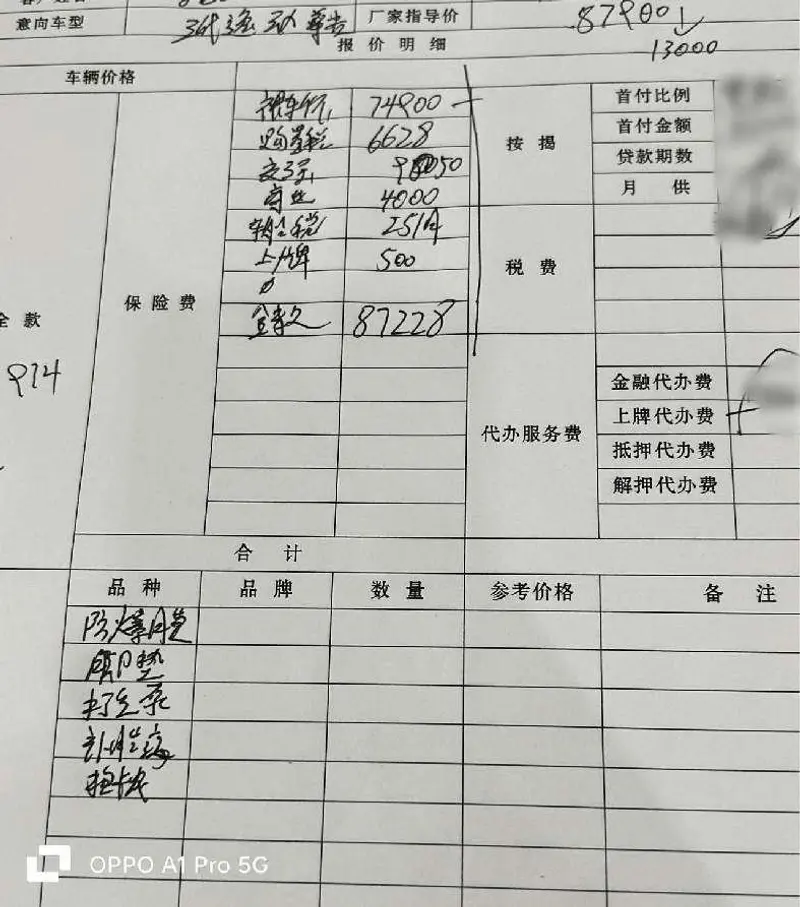 意向车型 厂家指导价 87900↓
报价明细 13000
车辆价格
裸车价 74900
购置税 6628
交强 950
商业 4000
车船税
上牌 500
87228
保险费
全款
按揭
首付比例
首付金额
贷款期数
月供
税费
代办服务费
金融代办费
上牌代办费
抵押代办费
解押代办费
合计
品种 品牌 数量 参考价格 备注
防爆膜
脚垫
OPPO A1 Pro 5G